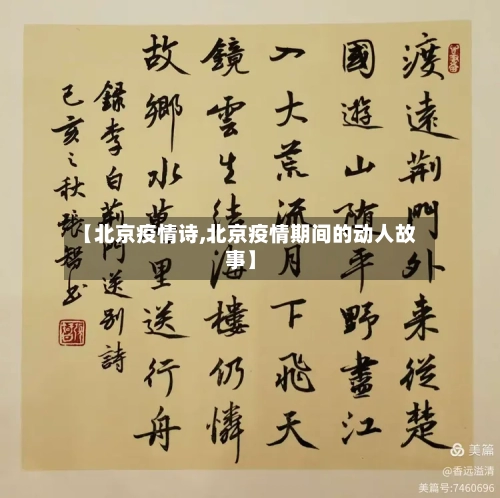 渡遠荆門外来從楚
國遊山随平野盡江
入大荒流月下飛天
鏡雲生结海樓仍憐
故鄉水萬里送行舟
錄李白荆門送别詩
己亥之秋張
【北京疫情诗,北京疫情期间的动人故
事】
美篇
@香远溢清
美篇号:7460696